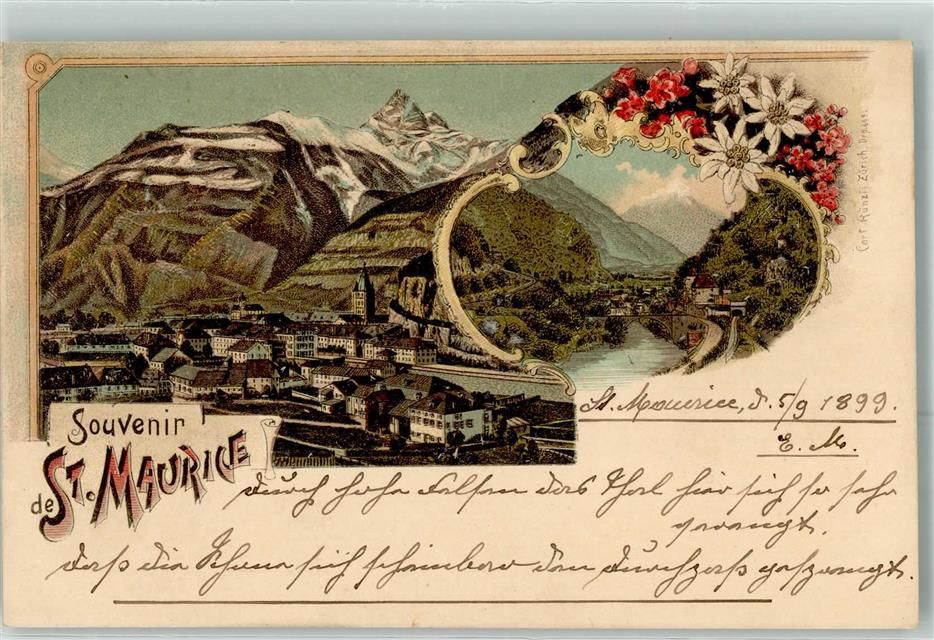 Souvenir
de ST. MAURICE
Carl Künzli Zürich Dep. 469.
St. Maurice, d. 5/9 1899.
E. M.
durch hohe Felsen das Thal hier sich so sehr
verengt,
daß die Rhone sich scheinbar den Durchpaß gezwengt.